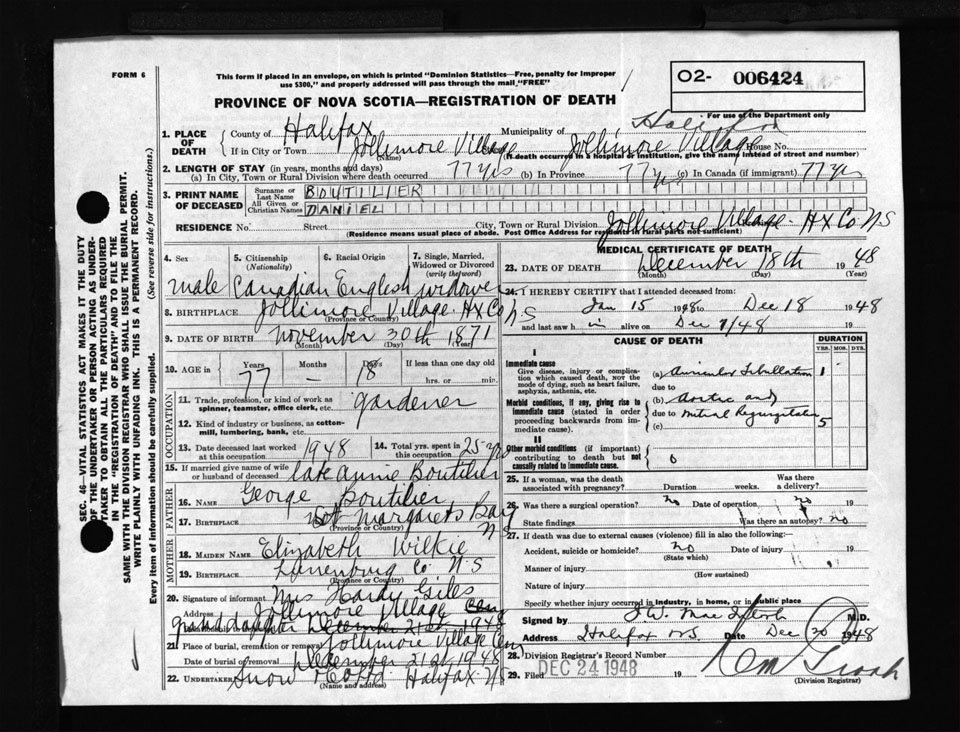 FORM 6
This form if placed in an envelope, on which is printed "Dominion Statistics—Free, penalty for improper
use $300," and properly addressed will pass through the mail "FREE"
O2- 006424
For use of the Department only
PROVINCE OF NOVA SCOTIA—REGISTRATION OF DEATH
1. PLACE OF DEATH County of Halifax Municipality of Halifax
If in City or Town Jollimore Village (Name) Jollimore Village House No.
(If death occurred in a hospital or institution, give the name instead of street and number)
2. LENGTH OF STAY (in years, months and days)
(a) In City, Town or Rural Division where death occurred 77 yrs (b) In Province 77 yrs (c) In Canada (if immigrant) 77 yrs
3. PRINT NAME OF DECEASED Surname or Last Name BOUTILIER
All Given or Christian Names DANIEL
RESIDENCE No. Street City, Town or Rural Division Jollimore Village - HX Co N S
(Residence means usual place of abode. Post Office Address for residents in rural parts not sufficient)
4. Sex 5. Citizenship (Nationality) 6. Racial Origin 7. Single, Married, Widowed or Divorced (write the word)
male Canadian English widower
8. BIRTHPLACE Jollimore Village - HX Co N S
(Province or Country)
9. DATE OF BIRTH November 30th 1871
(Month) (Day) (Year)
10. AGE in Years Months Days If less than one day old
77 — 18 hrs. or min.
OCCUPATION
11. Trade, profession, or kind of work as spinner, teamster, office clerk, etc. gardener
12. Kind of industry or business, as cotton-mill, lumbering, bank, etc.
13. Date deceased last worked at this occupation 1948 14. Total yrs. spent in this occupation 25 yrs
15. If married give name of wife or husband of deceased late Annie Boutilier
FATHER
16. NAME George Boutilier
17. BIRTHPLACE Margarets Bay N
(Province or Country)
MOTHER
18. MAIDEN NAME Elizabeth Wilkie
19. BIRTHPLACE Lunenburg Co N.S
(Province or Country)
20. Signature of informant Mrs Hardy Giles
Address Jollimore Village
grand daughter December 21st 1948
21. Place of burial, cremation or removal Jollimore Village Cem
Date of burial or removal December 21st 1948
22. Undertaker Snow & Co Ltd Halifax N S
(Name and address)
MEDICAL CERTIFICATE OF DEATH
23. DATE OF DEATH December 18th 1948
(Month) (Day) (Year)
24. I HEREBY CERTIFY that I attended deceased from:
Jan 15 1948 to Dec 18 1948
and last saw him alive on Dec 7/48 19
CAUSE OF DEATH DURATION
YRS. MOS. DYS.
I
Immediate cause
Give disease, injury or complication which caused death, not the mode of dying, such as heart failure, asphyxia, asthenia, etc.
(a) Auricular Fibrillation 1
due to
Morbid conditions, if any, giving rise to immediate cause (stated in order proceeding backwards from immediate cause).
(b) Aortic and
due to Mitral Regurgitation 5
(c)
II
Other morbid conditions (if important) contributing to death but not causally related to immediate cause. 0
25. If a woman, was the death associated with pregnancy? Duration weeks. Was there a delivery?
26. Was there a surgical operation? no Date of operation no 19
State findings Was there an autopsy? no
27. If death was due to external causes (violence) fill in also the following:
Accident, suicide or homicide? no Date of injury 19
(State which)
Manner of injury
(How sustained)
Nature of injury
Specify whether injury occurred in industry, in home, or in public place
Signed by M.D.
Address Halifax N.S. Date Dec 20 1948
28. Division Registrar's Record Number
29. Filed DEC 24 1948 19
(Division Registrar)
SEC. 46—VITAL STATISTICS ACT MAKES IT THE DUTY
OF THE UNDERTAKER OR PERSON ACTING AS UNDER-
TAKER TO OBTAIN ALL THE PARTICULARS REQUIRED
IN THE "REGISTRATION OF DEATH" AND TO FILE THE
SAME WITH THE DIVISION REGISTRAR WHO SHALL ISSUE THE BURIAL PERMIT.
WRITE PLAINLY WITH UNFADING INK. THIS IS A PERMANENT RECORD.
Every item of information should be carefully supplied. (See reverse side for instructions.)